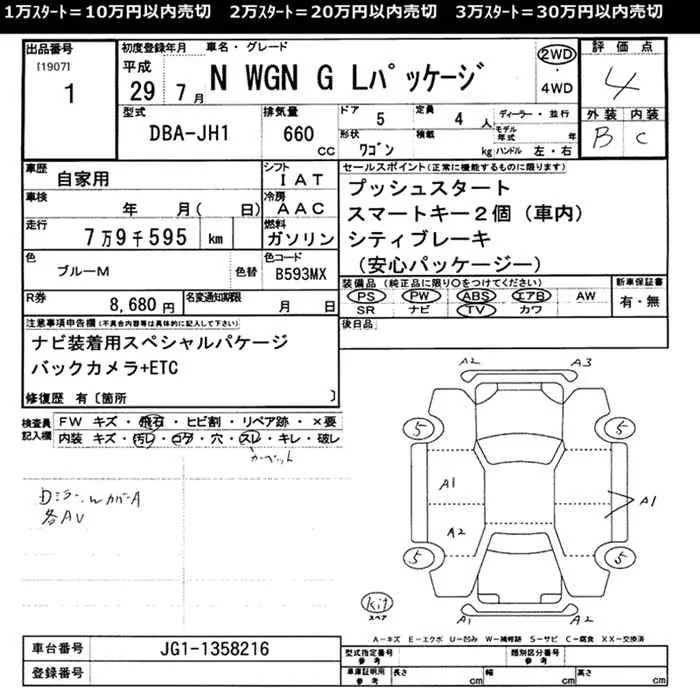 1万ｽﾀｰﾄ＝10万円以内売切　2万ｽﾀｰﾄ＝20万円以内売切　3万ｽﾀｰﾄ＝30万円以内売切
出品番号 初度登録年月 車名・グレード 評価点
[1907] 平成 2WD ・ 4WD 4
1 29 7月 N WGN G Lﾊﾟｯｹｰｼﾞ
外装 内装
B C
型式 排気量 ドア 5 定員 4 人 ディーラー・並行
DBA-JH1 660 cc 形状 ワゴン 積載 kg モデル年式 年 ハンドル 左・右
車歴 自家用 シフト IAT セールスポイント(正常に機能するものに限ります)
車検 年 月( 日) 冷房 AAC プッシュスタート
スマートキー２個（車内）
走行 7万9千595 km 燃料 ガソリン シティブレーキ
（安心パッケージー）
色 ブルーM 色替 色コード B593MX
装備品 (純正品に限り○をつけてください) 新車保証書
PS PW ABS エアB AW 有・無
SR ナビ TV カワ
R券 8,680円 名変通知期限 月 日
後日品
注意事項申告欄(不具合内容等は具体的に記入して下さい)
ナビ装着用スペシャルパケージ
バックカメラ+ETC
修復歴 有〔箇所 〕
検査員記入欄 FW キズ・飛石・ヒビ割・リペア跡・×要
内装 キズ・汚レ・コゲ・穴・スレ・キレ・破レ
カーペット
DミラーカバーA
各AU
A2 A3
5 5
A1
A2
A1
5 5
Kit
スペア
A1 A2
A－キズ E－エクボ U－凹み W－補修跡 S－サビ C－腐食 XX－交換済
車台番号 JG1-1358216
登録番号
型式指定番号 参考 類別区分番号 参考
車庫証明用 参考 長さ cm 幅 cm 高さ cm